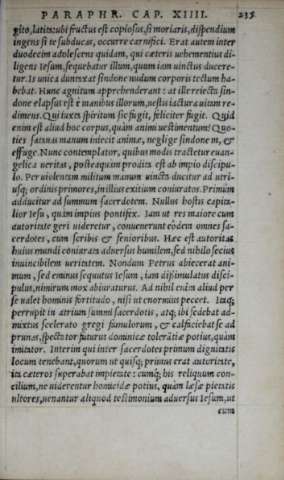 PARAPHR. CAP. XIIII. 235
gito, latitãdi fructus est copiosus, si moriaris, dispendium
ingens si te subducas, occurre carnifici. Erat autem inter
duodecim adolescens quidam, qui cæteris uehementius di-
ligens Iesum, sequebatur illum, quum iam uinctus ducere-
tur. Is unica duntaxat sindone nudum corporis tectum ha-
bebat. Hunc agnitum apprehenderant: at ille reiecta sin-
done elapsus est è manibus illorum, uestis iactura uitam re-
dimens. Qui iuxta spiritum sic fugit, feliciter fugit. Quid
enim est aliud hoc corpus, quàm animi uestimentum? Quo-
ties satanas manum iniecit animæ, neglige sindonem, &
effuge. Nunc contemplator, quibus modis tractetur euan-
gelica ueritas, posteaquam prodita est ab impio discipu-
lo. Per uiolentam militum manum uincta ducitur ad utri-
usq; ordinis primores, in illius exitium coniuratos. Primùm
adducitur ad summum sacerdotem. Nullus hostis capita-
lior Iesu, quàm impius pontifex. Iam ut res maiore cum
autoritate geri uideretur, conuenerunt eòdem omnes sa-
cerdotes, cum scribis & senioribus. Hæc est autoritas
huius mundi coniurata aduersus humilem, sed nihilo secius
inuincibilem ueritatem. Nondum Petrus abiecerat ani-
mum, sed eminus sequutus Iesum, iam dissimulatus disci-
pulus, nimirum mox abiuraturus. Ad nihil enim aliud per
se ualet hominis fortitudo, nisi ut enormius peccet. Itaq;
perrupit in atrium summi sacerdotis, atq; ibi sedebat ad-
mixtus scelerato gregi famulorum, & calficiebat se ad
prunas, spectator futurus dominicæ tolerãtiæ potius, quàm
imitator. Interim qui inter sacerdotes primum dignitatis
locum tenebant, quorum ut quisq; primus erat autoritate,
ita cæteros superabat impietate: cumq; his reliquum con-
cilium, ne uiderentur homicidæ potius, quàm læsæ pietatis
ultores, uenantur aliquod testimonium aduersus Iesum, ut
cum